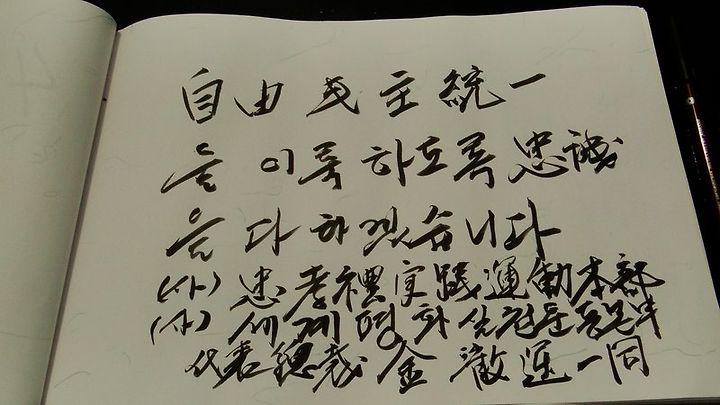 自由民主統一
을 이룩하도록 忠誠
을 다하겠습니다
(사) 忠孝禮实践運動本部
(사) 세계평화실천운동본부
代表總裁 金 徹運 一同